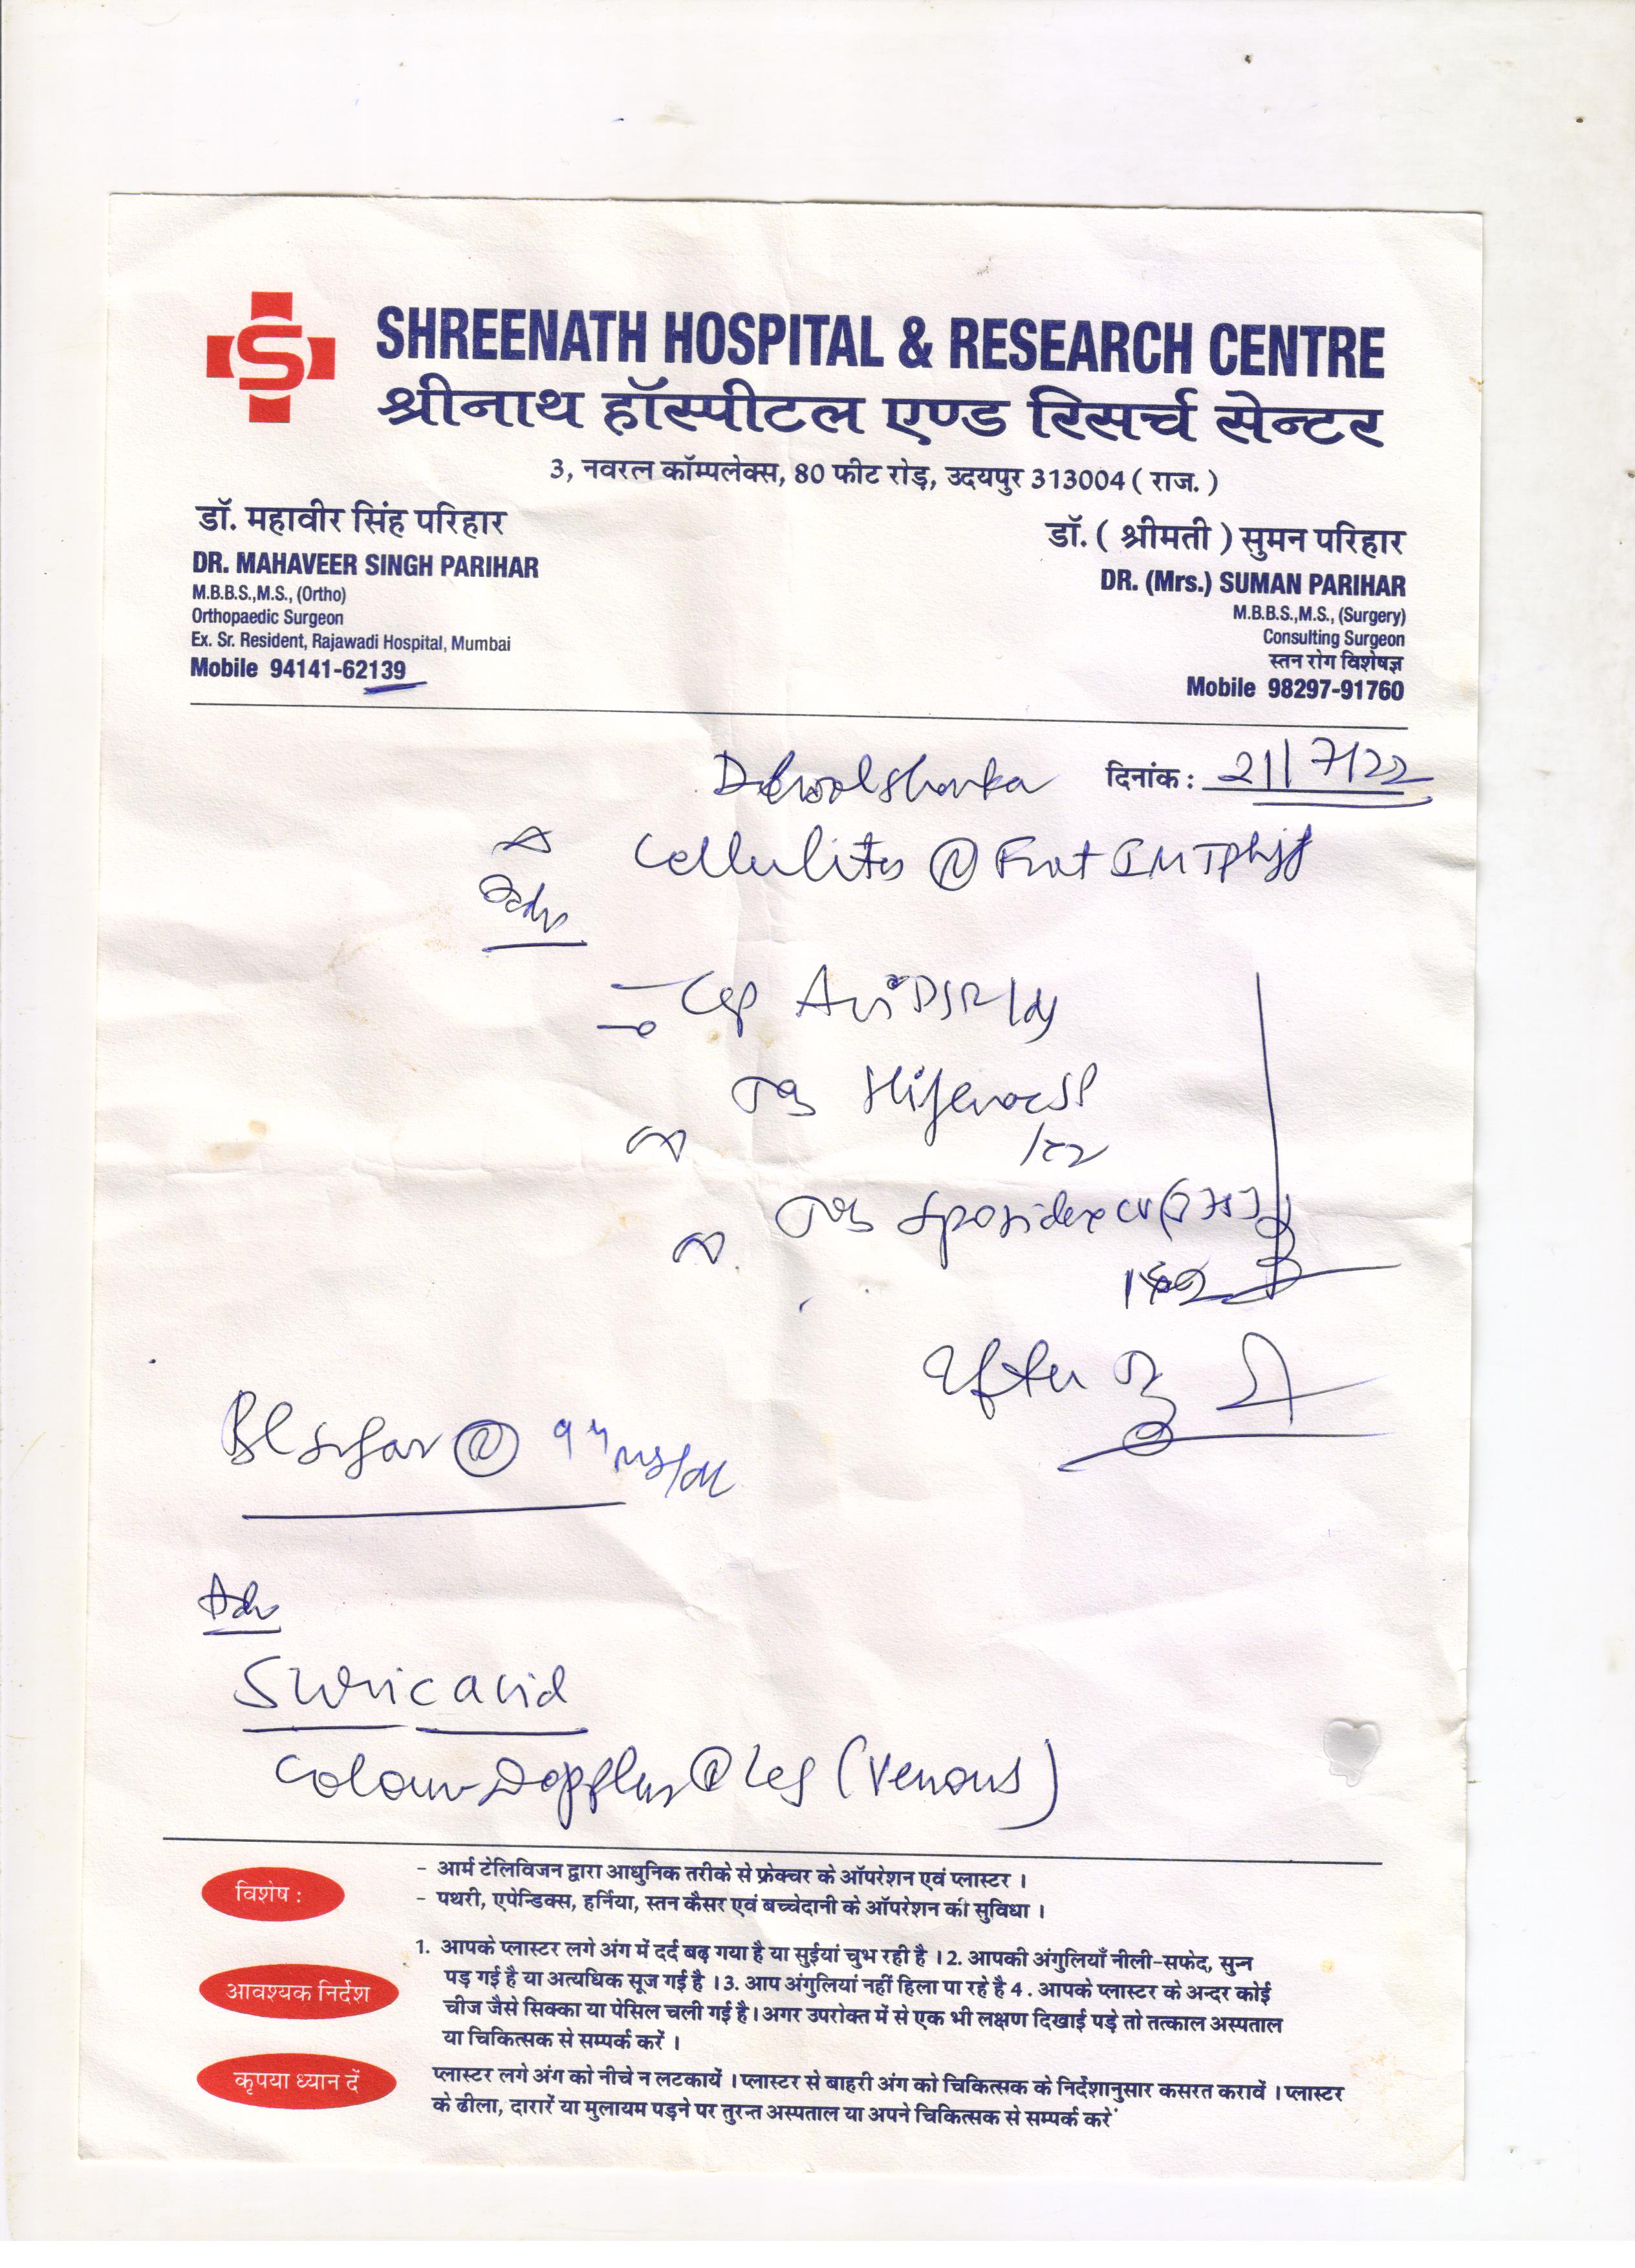 S
SHREENATH HOSPITAL & RESEARCH CENTRE
श्रीनाथ हॉस्पीटल एण्ड रिसर्च सेन्टर
3, नवरत्न कॉम्पलेक्स, 80 फीट रोड़, उदयपुर 313004 ( राज. )
डॉ. महावीर सिंह परिहार
DR. MAHAVEER SINGH PARIHAR
M.B.B.S.,M.S., (Ortho)
Orthopaedic Surgeon
Ex. Sr. Resident, Rajawadi Hospital, Mumbai
Mobile 94141-62139
डॉ. ( श्रीमती ) सुमन परिहार
DR. (Mrs.) SUMAN PARIHAR
M.B.B.S.,M.S., (Surgery)
Consulting Surgeon
स्तन रोग विशेषज्ञ
Mobile 98297-91760
दिनांक : 21/7/22
Cellulitis
Adv
Cap
Bl sugar
Adv
S Uric acid
Colour Doppler Leg (Venous)
विशेष :
- आर्म टेलिविजन द्वारा आधुनिक तरीके से फ्रेक्चर के ऑपरेशन एवं प्लास्टर ।
- पथरी, एपेन्डिक्स, हर्निया, स्तन कैसर एवं बच्चेदानी के ऑपरेशन की सुविधा ।
आवश्यक निर्देश
1. आपके प्लास्टर लगे अंग में दर्द बढ़ गया है या सुईयां चुभ रही है । 2. आपकी अंगुलियाँ नीली-सफेद, सुन्न
पड़ गई है या अत्यधिक सूज गई है । 3. आप अंगुलियां नहीं हिला पा रहे है 4 . आपके प्लास्टर के अन्दर कोई
चीज जैसे सिक्का या पेसिल चली गई है। अगर उपरोक्त में से एक भी लक्षण दिखाई पड़े तो तत्काल अस्पताल
या चिकित्सक से सम्पर्क करें ।
कृपया ध्यान दें
प्लास्टर लगे अंग को नीचे न लटकायें । प्लास्टर से बाहरी अंग को चिकित्सक के निर्देशानुसार कसरत करावें । प्लास्टर
के ढीला, दारारें या मुलायम पड़ने पर तुरन्त अस्पताल या अपने चिकित्सक से सम्पर्क करें